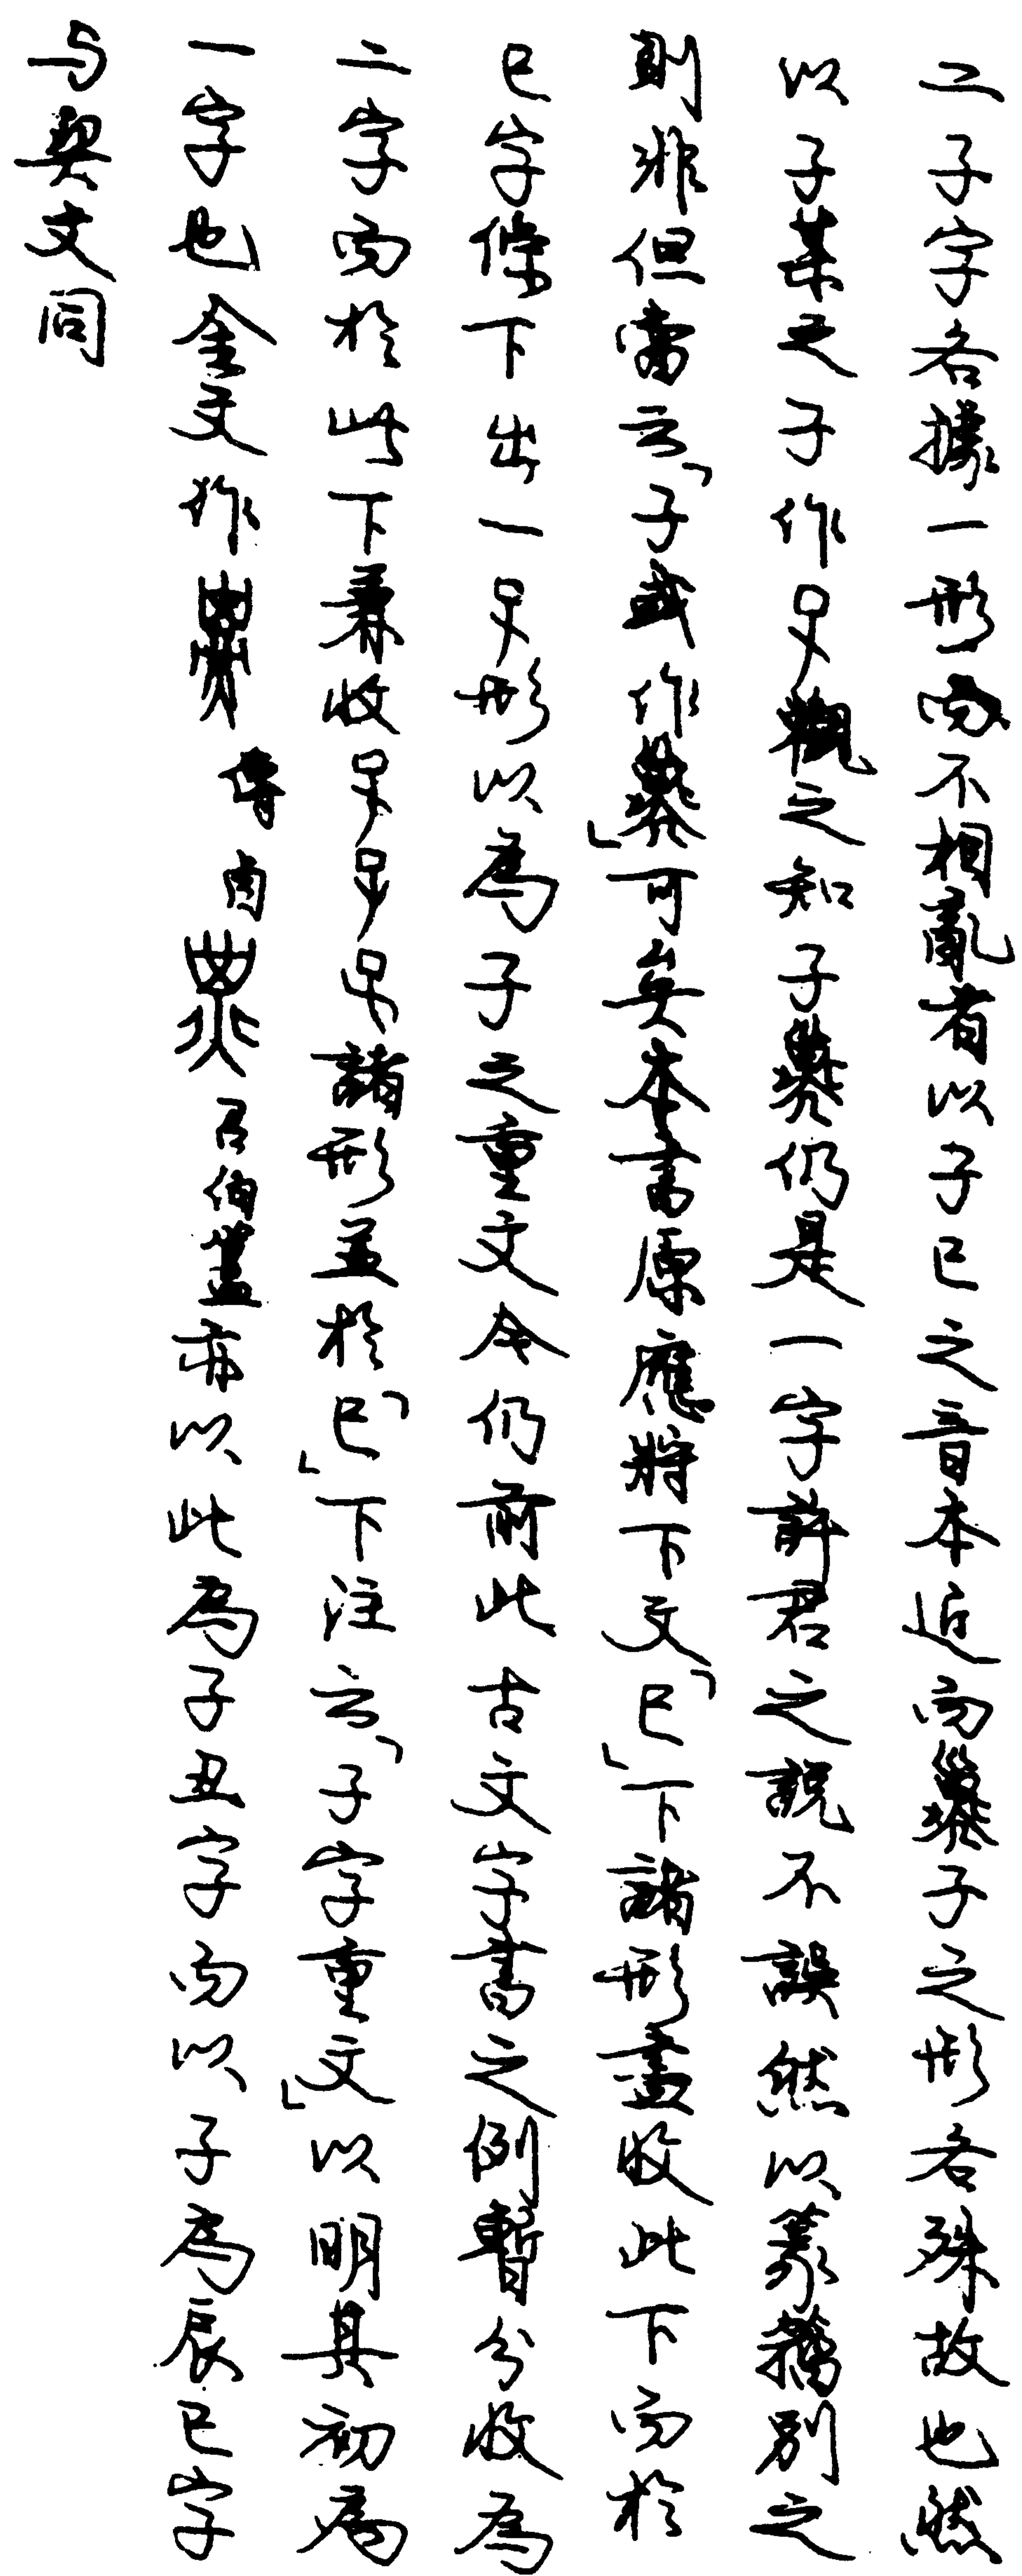 二子字各據一形而不相亂者以子巳之音本近而㜽子之形各殊故也然
以子某之子作觀之知子仍是一字許君之說不誤然以篆籀別之
則非但當云「子或作」可矣本書原應將下文「巳」下諸形盡收此下而於
巳字條下出一形以為子之重文今仍前此古文字書之例暫分收為
二字而於此下兼收諸形並於「巳」下注云「子字重文」以明其初為
一字也金文作傳卣召伯簋亦以此為子丑字而以子為辰巳字
与契文同